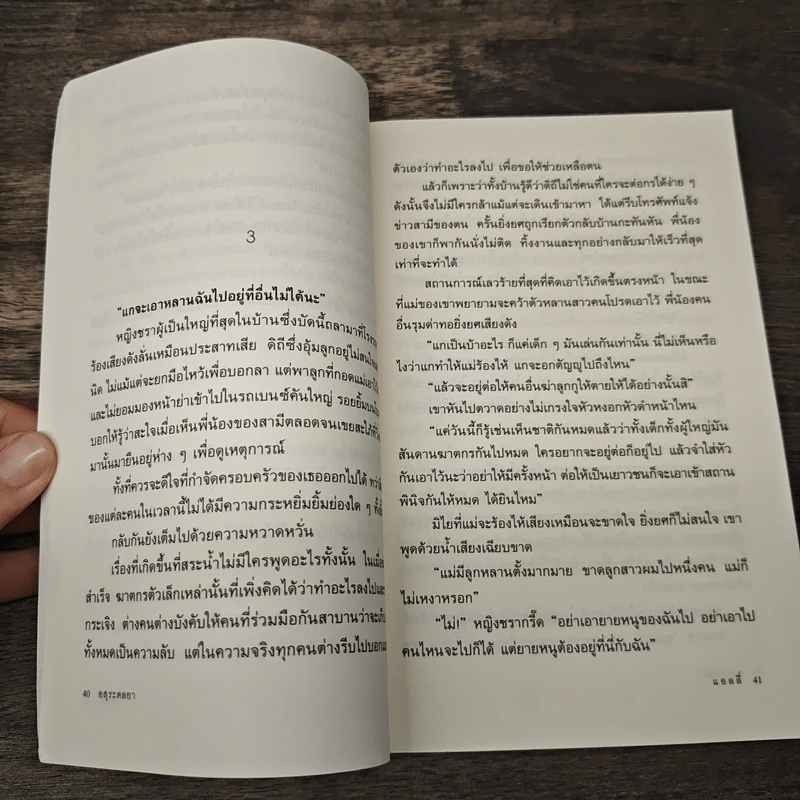 3
"แกจะเอาหลานฉันไปอยู่ที่อื่นไม่ได้นะ"
หญิงชราผู้เป็นใหญ่ที่สุดในบ้านซึ่งบัดนี้ถลามาที่
ร้องเสียงดังลั่นเหมือนประสาทเสีย ดิถีซึ่งอุ้มลูกอยู่ไม่สนใจ
นิด ไม่แม้แต่จะยกมือไหว้เพื่อบอกลา แต่พาลูกที่กอดแม่
และไม่ยอมมองหน้าย่าเข้าไปในรถเบนซ์คันใหญ่ รอยยิ้ม
บอกให้รู้ว่าสะใจเมื่อเห็นพี่น้องของสามีตลอดจนเขยสะใภ้ที่
มานั้นมายืนอยู่ห่าง ๆ เพื่อดูเหตุการณ์
ทั้งที่ควรจะดีใจที่กำจัดครอบครัวของเธอออกไปได้
ของแต่ละคนในเวลานี้ไม่ได้มีความกระหยิ่มยิ้มย่องใด ๆ
กลับกันยังเต็มไปด้วยความหวาดหวั่น
เรื่องที่เกิดขึ้นที่สระน้ำไม่มีใครพูดอะไรทั้งนั้น ในเมื่อ
สำเร็จ ฆาตกรตัวเล็กเหล่านั้นที่เพิ่งคิดได้ว่าทำอะไรลงไป
กระเจิง ต่างคนต่างบังคับให้คนที่ร่วมมือกันสาบานว่าจะ
ทั้งหมดเป็นความลับ แต่ในความจริงทุกคนต่างรีบไปบอก
40 อสุระคลยา
ตัวเองว่าทำอะไรลงไป เพื่อขอให้ช่วยเหลือตน
แล้วก็เพราะว่าทั้งบ้านรู้ดีว่าดิถีไม่ใช่คนที่ใครจะต่อกรได้ง่าย ๆ
ดังนั้นจึงไม่มีใครกล้าแม้แต่จะเดินเข้ามาหา ได้แต่รีบโทรศัพท์แจ้ง
ข่าวสามีของตน ครั้นยิ่งยศถูกเรียกตัวกลับบ้านกะทันหัน พี่น้อง
ของเขาก็พากันนั่งไม่ติด ทิ้งงานและทุกอย่างกลับมาให้เร็วที่สุด
เท่าที่จะทำได้
สถานการณ์เลวร้ายที่สุดที่คิดเอาไว้เกิดขึ้นตรงหน้า ในขณะ
ที่แม่ของเขาพยายามจะคว้าตัวหลานสาวคนโปรดเอาไว้ พี่น้องคน
อื่นรุมด่าทอยิ่งยศเสียงดัง
"แกเป็นบ้าอะไร ก็แค่เด็ก ๆ มันเล่นกันเท่านั้น นี่ไม่เห็นหรือ
ไงว่าแกทำให้แม่ร้องไห้ แกจะอกตัญญูไปถึงไหน"
"แล้วจะอยู่ต่อให้คนอื่นฆ่าลูกกูให้ตายให้ได้อย่างนั้นสิ"
เขาหันไปตวาดอย่างไม่เกรงใจหัวหงอกหัวดำหน้าไหน
"แค่วันนี้ก็รู้เช่นเห็นชาติกันหมดแล้วว่าทั้งเด็กทั้งผู้ใหญ่มัน
สันดานฆาตกรกันไปหมด ใครอยากจะอยู่ต่อก็อยู่ไป แล้วจำใส่หัว
กันเอาไว้นะว่าอย่าให้มีครั้งหน้า ต่อให้เป็นเยาวชนก็จะเอาเข้าสถาน
พินิจกันให้หมด ได้ยินไหม"
มิไยที่แม่จะร้องไห้เสียงเหมือนจะขาดใจ ยิ่งยศก็ไม่สนใจ เขา
พูดด้วยน้ำเสียงเฉียบขาด
"แม่มีลูกหลานตั้งมากมาย ขาดลูกสาวผมไปหนึ่งคน แม่ก็
ไม่เหงาหรอก"
"ไม่!" หญิงชรากรี๊ด "อย่าเอายายหนูของฉันไป อย่าเอาไป
คนไหนจะไปก็ได้ แต่ยายหนูต้องอยู่ที่นี่กับฉัน"
แอลลี่ 41